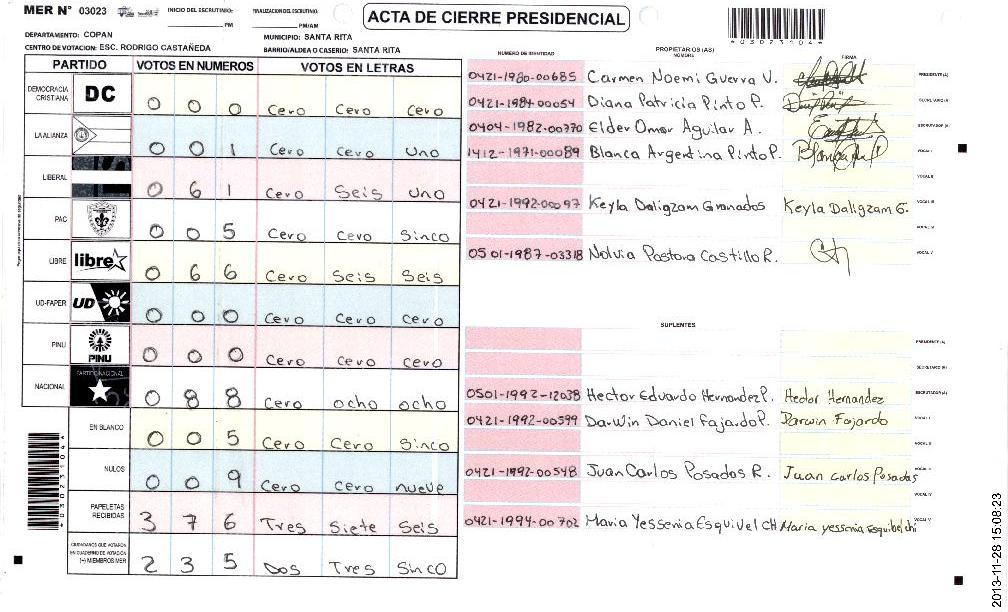 MER Nº 03023
INICIO DEL ESCRUTINIO: PM
FINALIZACION DEL ESCRUTINIO: PM/AM
ACTA DE CIERRE PRESIDENCIAL
*03023104*
DEPARTAMENTO: COPAN
MUNICIPIO: SANTA RITA
CENTRO DE VOTACION: ESC. RODRIGO CASTAÑEDA
BARRIO/ALDEA O CASERIO: SANTA RITA
PARTIDO VOTOS EN NUMEROS VOTOS EN LETRAS
DEMOCRACIA CRISTIANA DC 0 0 0 Cero Cero Cero
LA ALIANZA 0 0 1 Cero Cero Uno
LIBERAL 0 6 1 Cero Seis Uno
PAC 0 0 5 Cero Cero Sinco
LIBRE libre 0 6 6 Cero Seis Seis
UD-FAPER UD 0 0 0 Cero Cero Cero
PINU PINU 0 0 0 Cero Cero Cero
NACIONAL PARTIDO NACIONAL 0 8 8 Cero ocho ocho
EN BLANCO 0 0 5 Cero Cero Sinco
NULOS 0 0 9 Cero Cero nueve
PAPELETAS RECIBIDAS 3 7 6 Tres Siete Seis
CIUDADANOS QUE VOTARON EN CUADERNO DE VOTACION (+) MIEMBROS MER 2 3 5 Dos Tres Sinco
*03023104*
PROPIETARIOS (AS)
NUMERO DE IDENTIDAD NOMBRE FIRMA
0421-1980-00685 Carmen Noemi Guerra V. PRESIDENTE(A)
0421-1984-00054 Diana Patricia Pinto P. SECRETARIO(A)
0404-1982-00770 Elder Omar Aguilar A. ESCRUTADOR(A)
1412-1971-00089 Blanca Argentina Pinto P. VOCAL I
VOCAL II
0421-1992-00097 Keyla Daligzam Granados Keyla Daligzam G. VOCAL III
VOCAL IV
0501-1987-03318 Nolvia Pastora Castillo R. VOCAL V
SUPLENTES
PRESIDENTE(A)
SECRETARIO(A)
0501-1992-12038 Hector Eduardo Hernandez P. Hector Hernandez ESCRUTADOR(A)
0421-1992-00599 Darwin Daniel Fajardo P. Darwin Fajardo VOCAL I
VOCAL II
0421-1992-00548 Juan Carlos Posadas R. Juan carlos Posadas VOCAL III
VOCAL IV
0421-1994-00702 Maria Yessenia Esquivel CH Maria yessenia Esquibel chi VOCAL V
2013-11-28 15:08:23